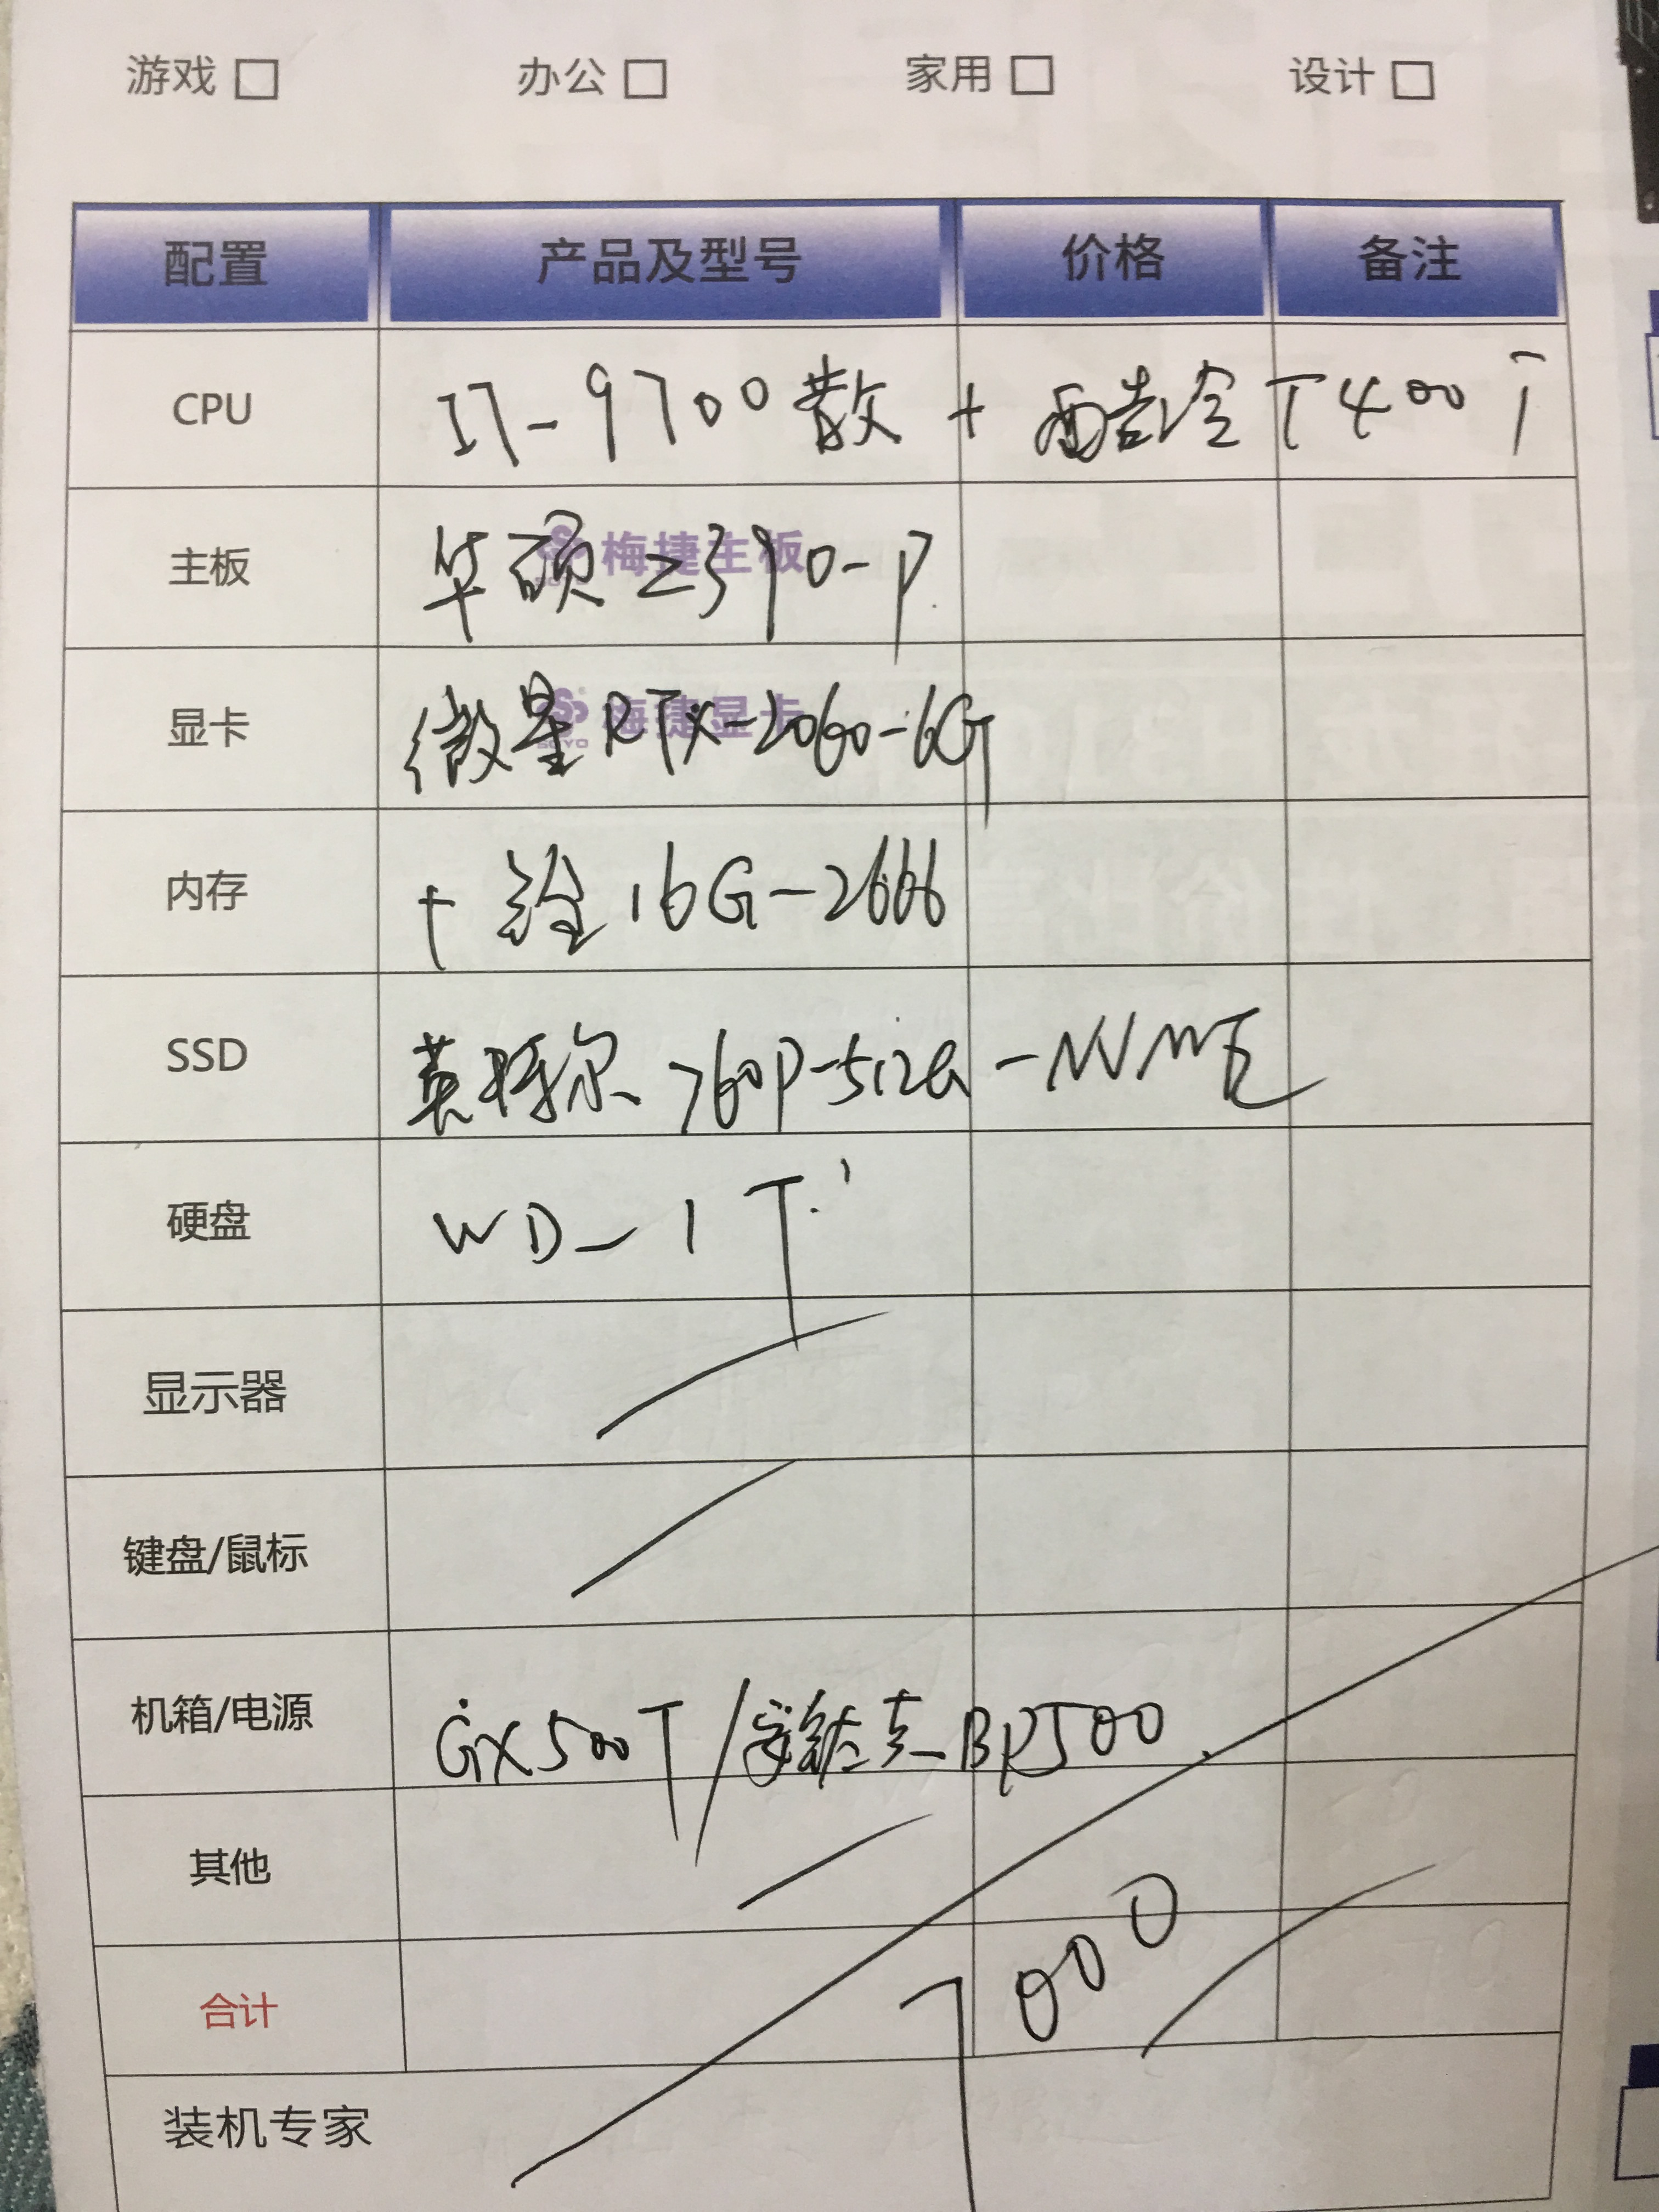 游戏 □ 办公 □ 家用 □ 设计 □
配置 产品及型号 价格 备注
CPU I7-9700散 + 酷冷T400i
主板 华硕Z390-P
梅捷主板
显卡 微星RTX-2060-6G
梅捷显卡
SOYO
内存 十铨16G-2666
SSD 英特尔760P-512G-NVME
硬盘 WD-1T
显示器
键盘/鼠标
机箱/电源 GX500T/安钛克BP500
其他
合计 7000
装机专家